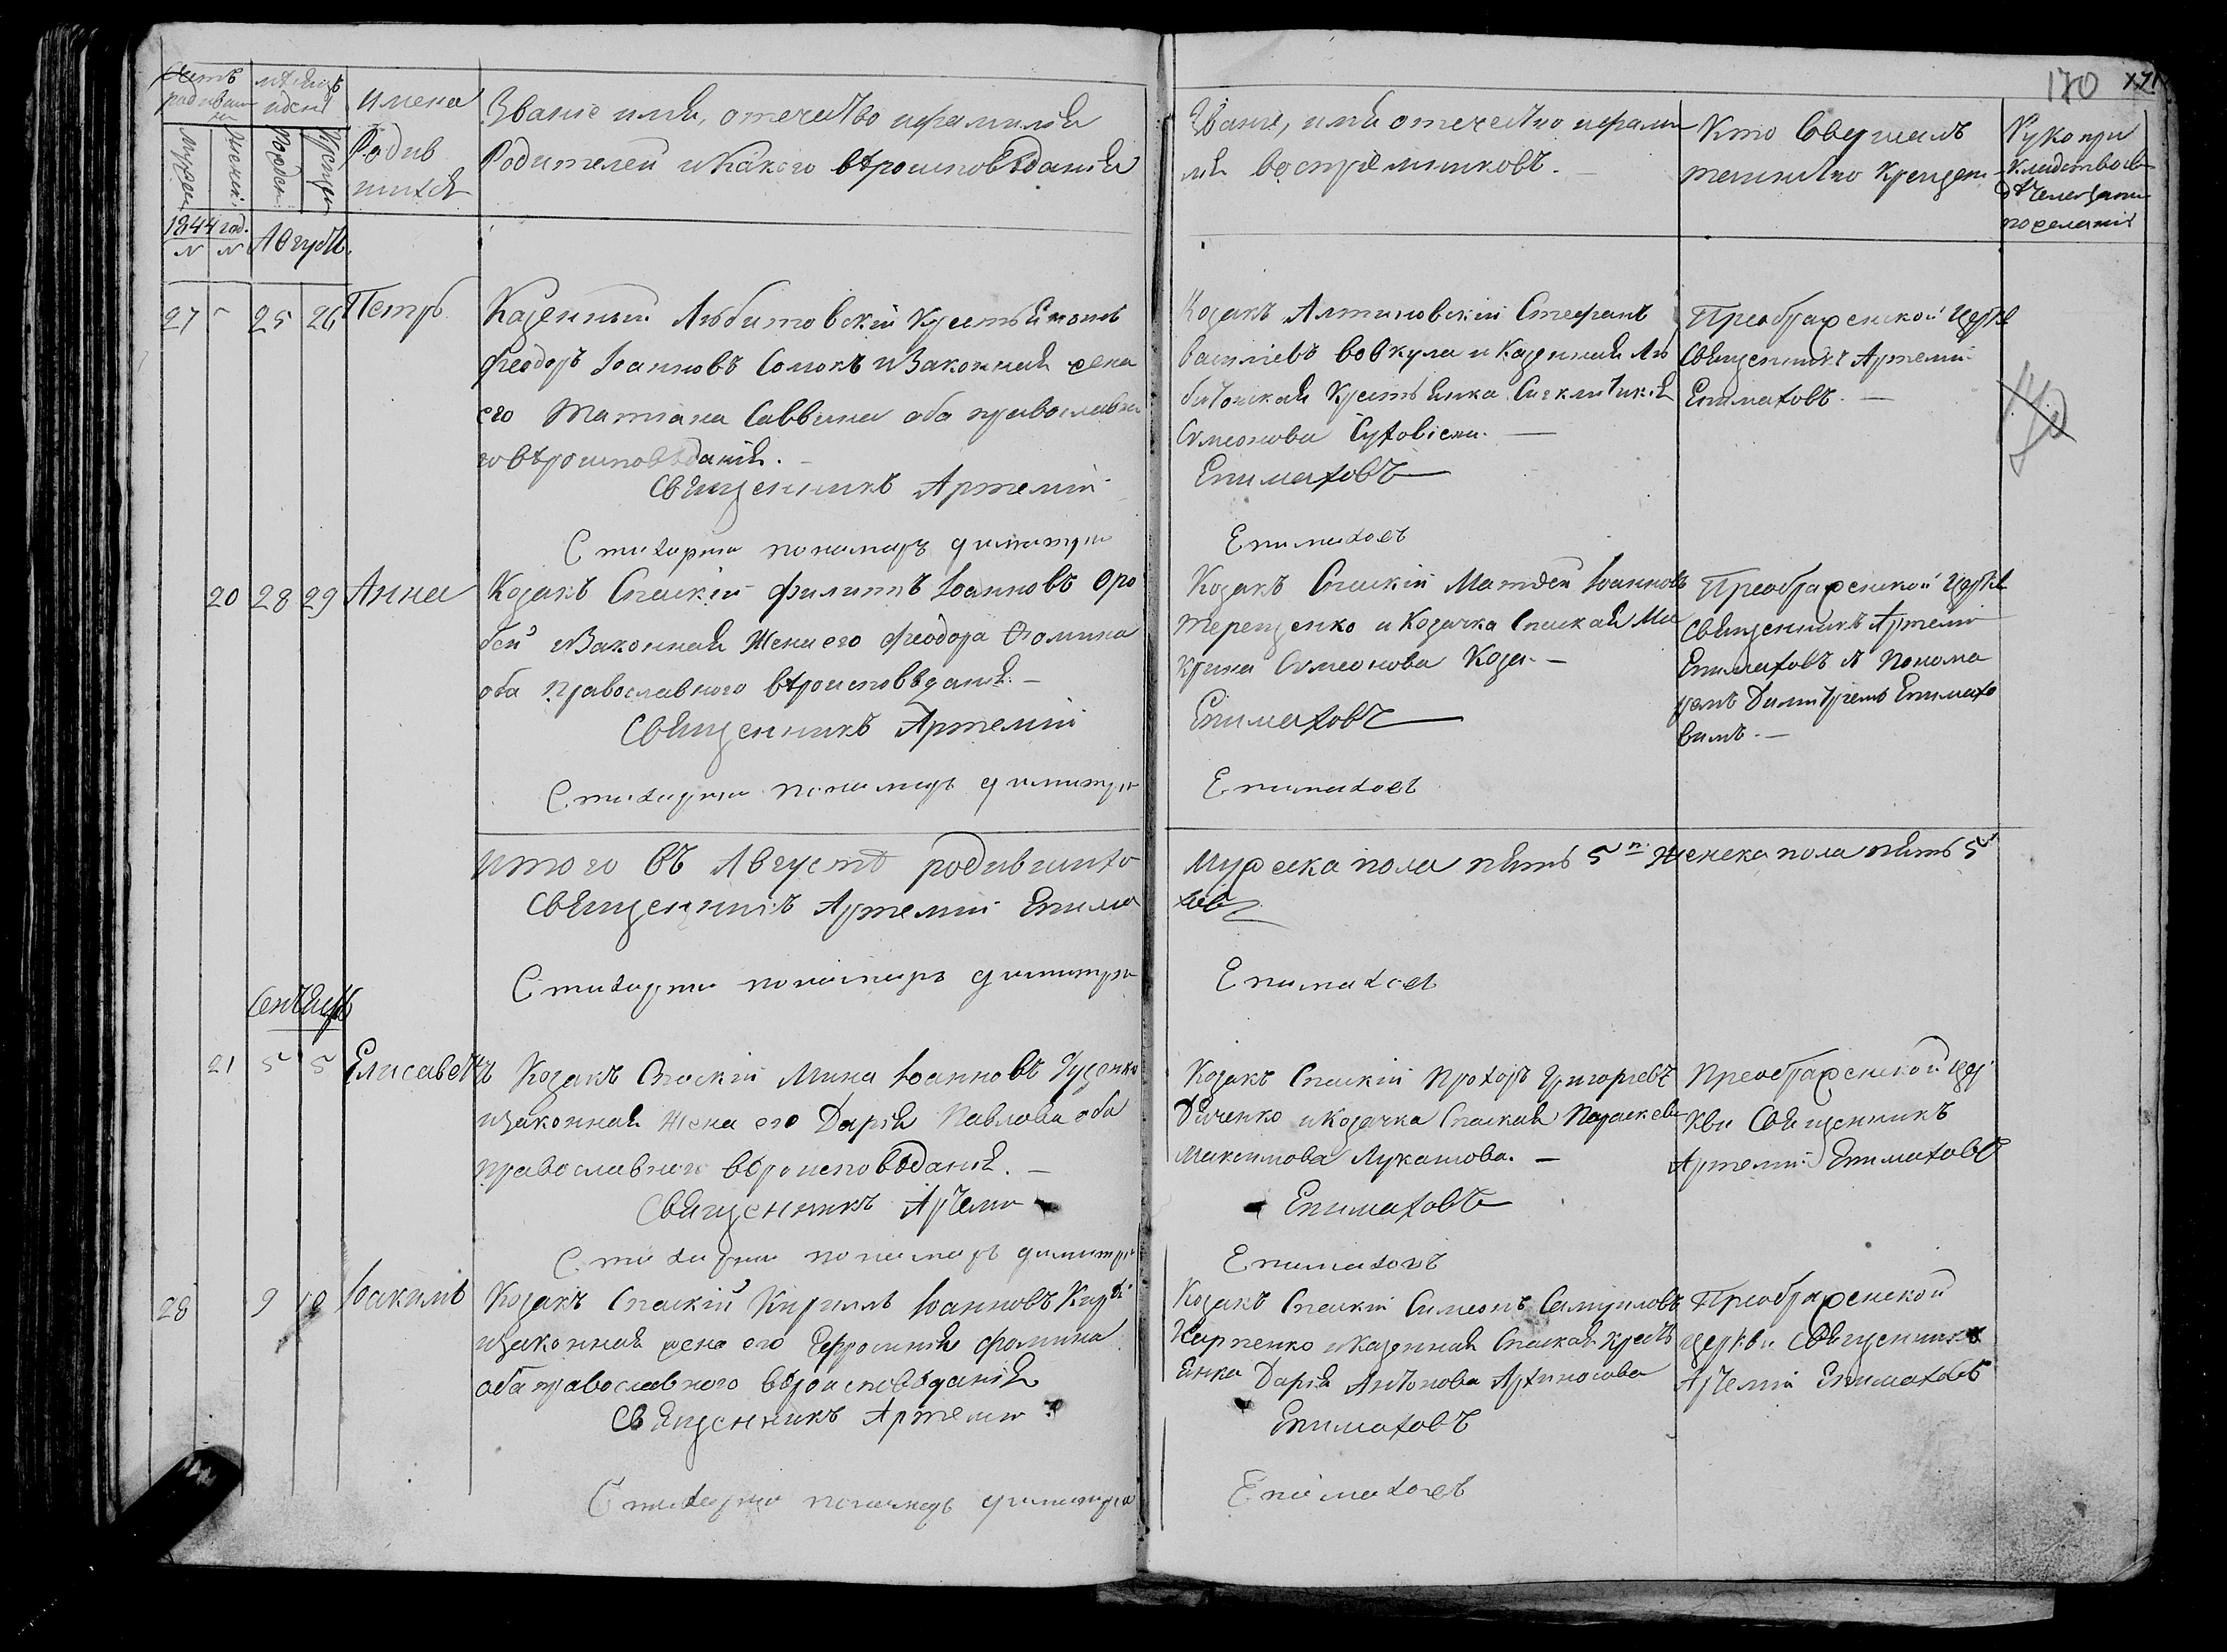 180 171
Счетъ родившихся
мѣсяцъ и день
имена Родившихся
Мужеск:
Женск:
Рожден:
Крещен:
Званіе имя, отечество и фамилія
Родителей и какого вѣроисповѣданія
Званіе, имя отечество и фами-
лія воспріемниковъ.
Кто Совершалъ
таинство крещен
1844 год.
N N Августъ
27 25 26 Петръ
Казенный Любитовскій Крестьянинъ
Феодоръ Іоанновъ Сомокъ и Законная жена
его Татіана Саввина оба православна
го вѣроисповѣданія.
Священникъ Артемій
Стихарный пономарь Димитрій
Козакъ Алтиновскій Стефанъ
Василіевъ Вовкула и Казенная Лю
битовская Крестьянка Синклитикія
Симеонова
Епимаховъ
Епимаховъ
Преображенской церкв
Священникъ Артемій
Епимаховъ.
170
20 28 29 Анна
Козакъ Спаскій Филиппъ Іоанновъ Оро
бей и Законная Жена его Феодора Фомина
оба православного вѣроисповѣданія.
Священникъ Артемій
Стихарный пономарь Димитрій
Козакъ Спаскій Матѳей Іоанновъ
Терещенко и Козачка Спаская Ма
крина Симеонова Коза.
Епимаховъ
Епимаховъ
Преображенской церкв
Священникъ Артемій
Епимаховъ съ Понома
ремъ Димитріемъ Епимахо
вымъ.
Итого въ Августѣ родившихся
Мужеска пола пять 5 Женска пола пять 5
Священникъ Артемій Епима
ховъ
Стихарный пономарь Димитрій
Епимаховъ
Сентябрь
21 5 5 Елисаветъ
Козакъ Спаскій Мина Іоанновъ Гусенко
и Законная Жена его Дарія Павлова оба
православного вѣроисповѣданія.
Священникъ Артемій
Стихарный пономарь Димитрій
Козакъ Спаскій Прохоръ Григоріевъ
Дяченко и Козачка Спаская Параскева
Максимова Лукашова.
Епимаховъ
Епимаховъ
Преображенской цер
кви Священникъ
Артемій Епимаховъ
28 9 10 Іоакимъ
Козакъ Спаскій Кириллъ Іоанновъ
и Законная жена его Ефросинія Фомина
оба православного вѣроисповѣданія
Священникъ Артемій
Стихарный пономарь Димитрій
Козакъ Спаскій Симеонъ Самуиловъ
Карпенко и Казенная Спаская Кресть
янка Дарія Антонова
Епимаховъ
Епимаховъ
Преображенской
церкви Священникъ
Артемій Епимаховъ